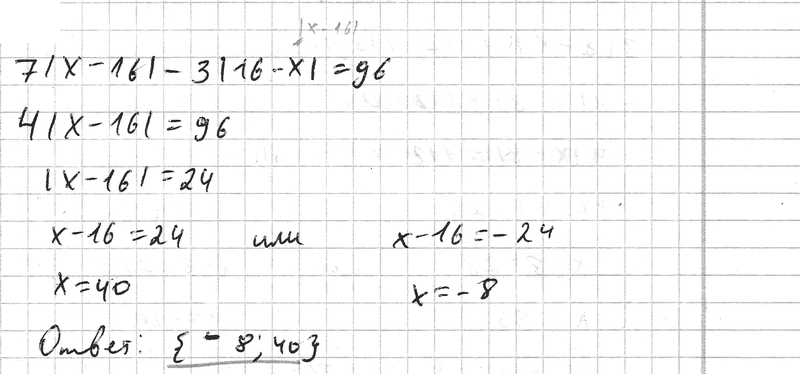 |x-16|
7|x-16|-3|16-x|=96
4|x-16|=96
|x-16|=24
x-16=24 или x-16=-24
x=40 x=-8
Ответ: {-8; 40}